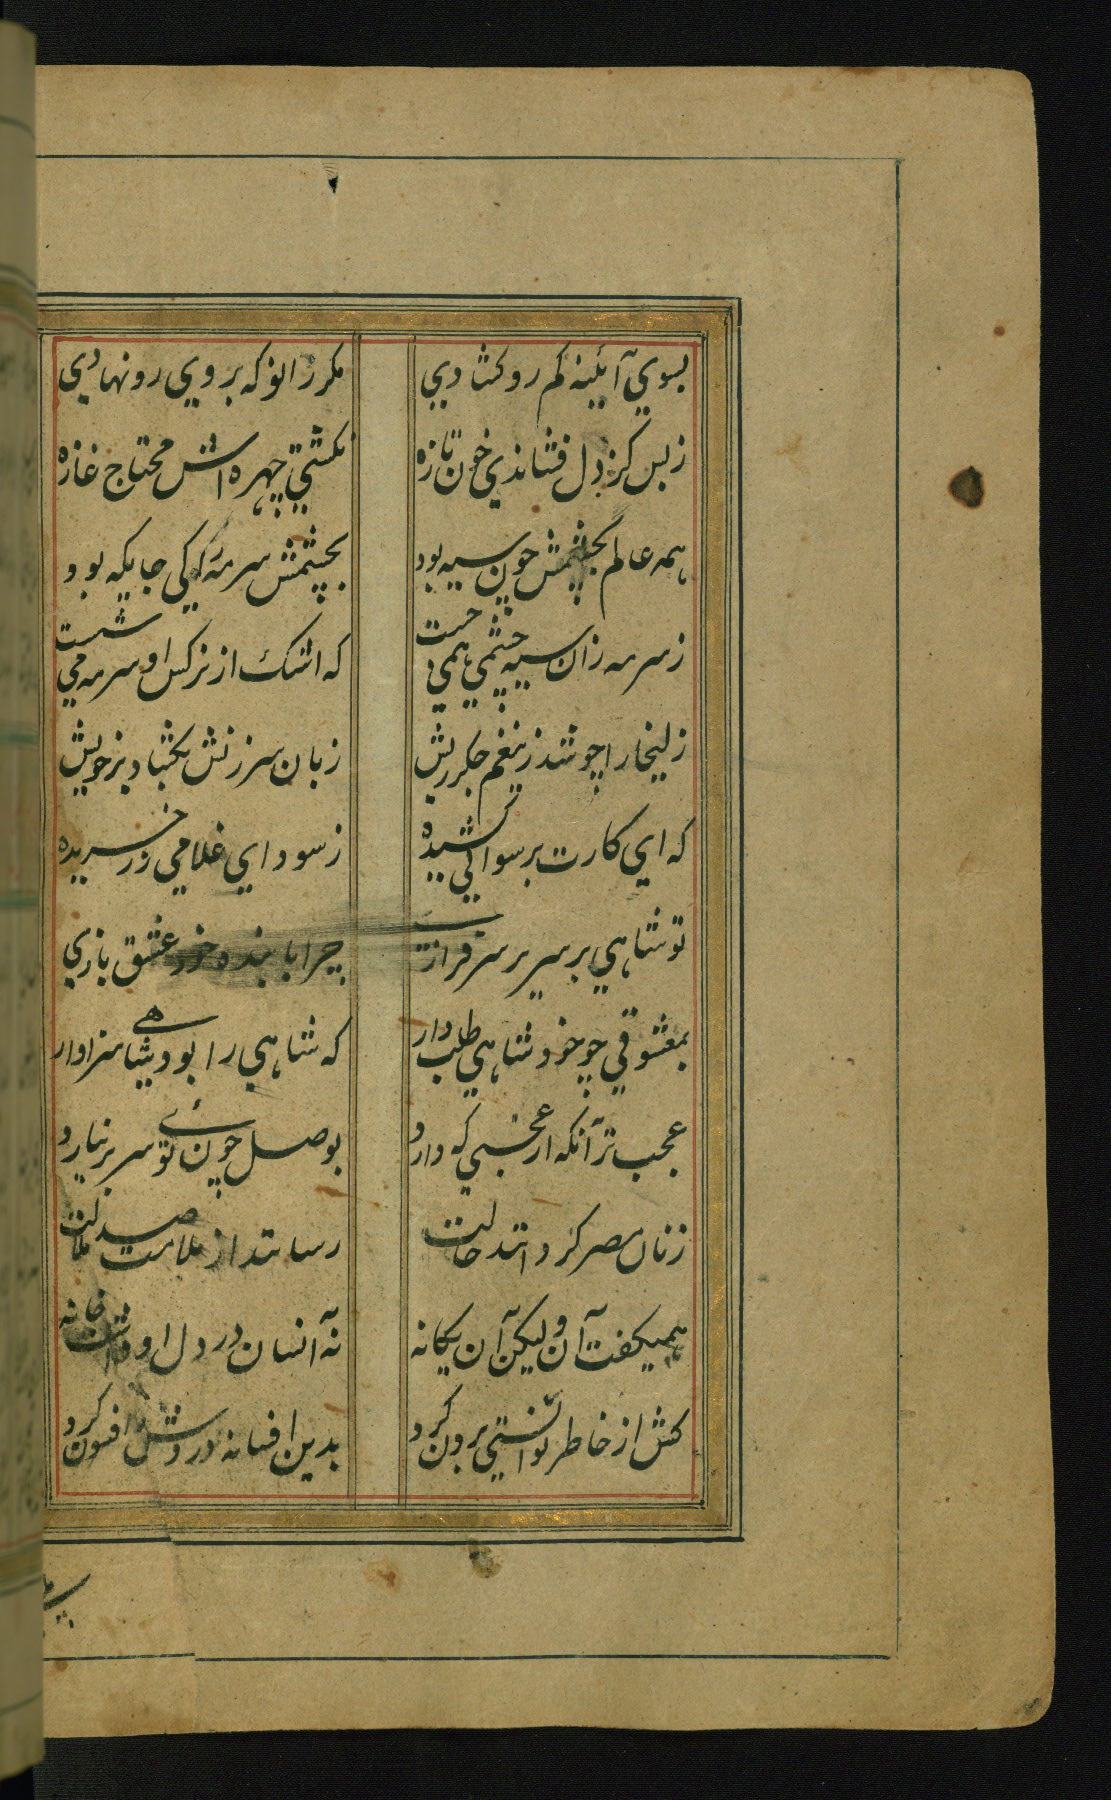 بسوي آئينه كم رو كشادي
مكر زانو كه بر وي رو نهادي
زبس كز دل فشاندي خون تازه
نكشتي چهره اش محتاج غازه
همه عالم بچشمش چون سيه بود
بچشمش سرمه را كي جايكه بود
ز سرمه زان سيه چشمي نمي جست
كه اشك از نركس او سرمه مي شست
زليخا را چو شد زين غم جكر ريش
زبان سرزنش بكشاد بر خويش
كه اي كارت برسوائي كشيده
ز سوداي غلامي زر خريده
تو شاهي بر سرير سرفرازي
چرا با بنده خود عشق بازي
بمعشوقي چو خود شاهي طلب دار
كه شاهي را بود شاهے سزاوار
عجب تر آنكه از عجبي كه دارد
بوصل چون توئے سر بر نيارد
زنان مصر كر دانند حالت
رسانند از ملامت صد ملالت
هميكفت آن وليكن آن يكانه
نه آنسان در دل او داشت خانه
كش از خاطر توانستي برون كرد
بدين افسانه دردش افسون كرد